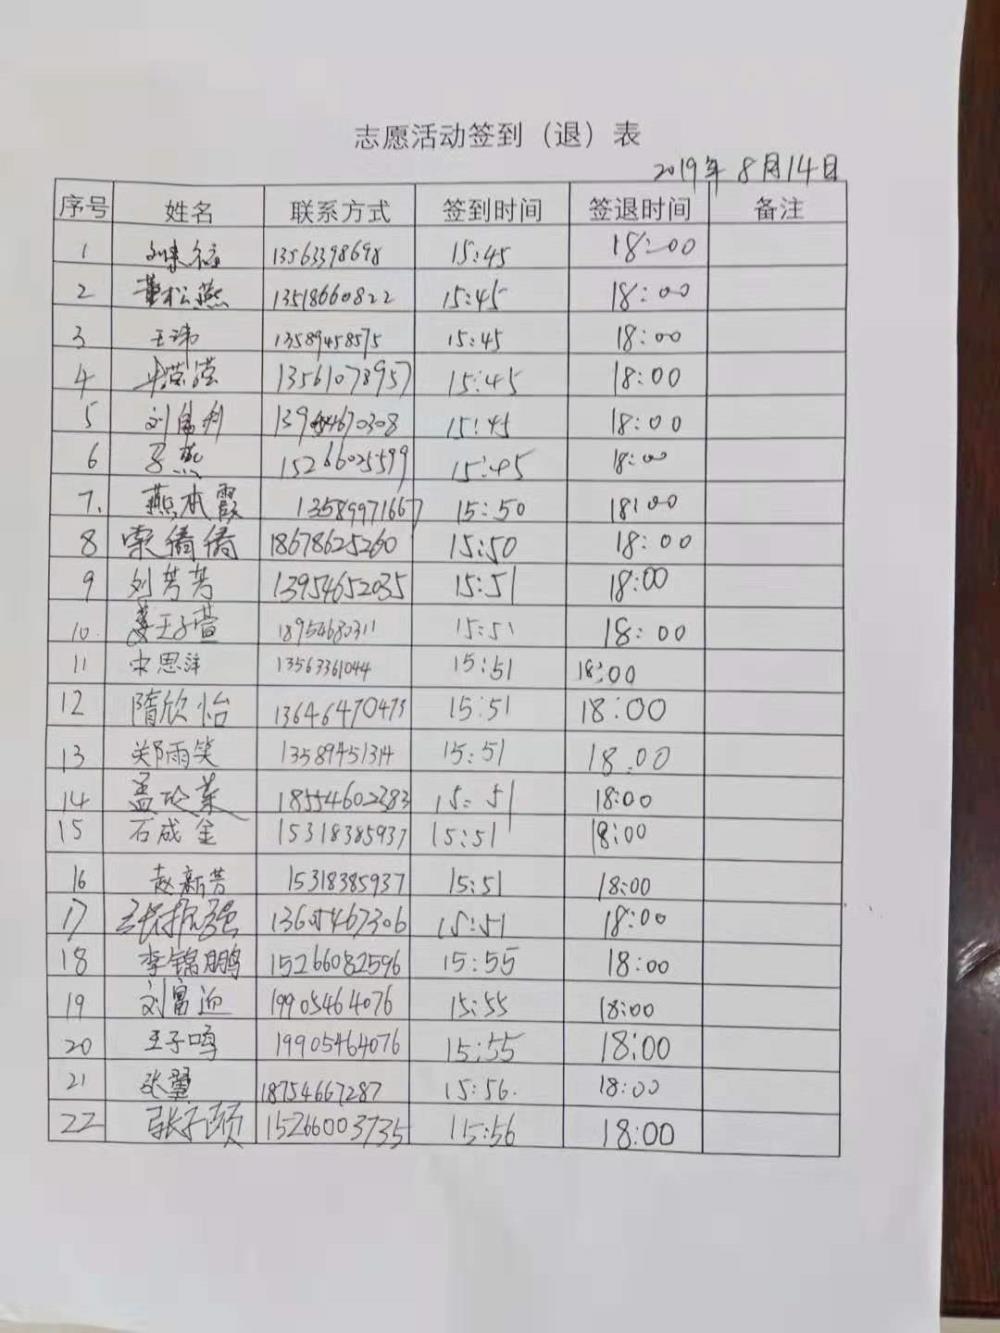 志愿活动签到（退）表
2019年8月14日
序号 姓名 联系方式 签到时间 签退时间 备注
1 13563398698 15:45 18:00
2 董松燕 13518660822 15:45 18:00
3 王玮 13589458575 15:45 18:00
4 13561078957 15:45 18:00
5 刘富利 15:45 18:00
6 15266025599 15:45 18:00
7. 燕本霞 13589971667 15:50 18:00
8 荣倩倩 18678625260 15:50 18:00
9 刘芳芳 13954652035 15:51 18:00
10. 姜王子萱 18954680311 15:51 18:00
11 宋思萍 13563361044 15:51 18:00
12 隋欣怡 13646470473 15:51 18:00
13 郑雨笑 13589451314 15:51 18.00
14 孟玲莱 18554602383 15:51 18:00
15 石成金 15318385937 15:51 18:00
16 赵新芳 15318385937 15:51 18:00
17 13605467306 15:51 18:00
18 李锦鹏 15266082596 15:55 18:00
19 刘富迎 19905464076 15:55 18:00
20 王子鸣 19905464076 15:55 18:00
21 张翼 18754667287 15:56. 18:00
22 张子硕 15266003735 15:56 18:00